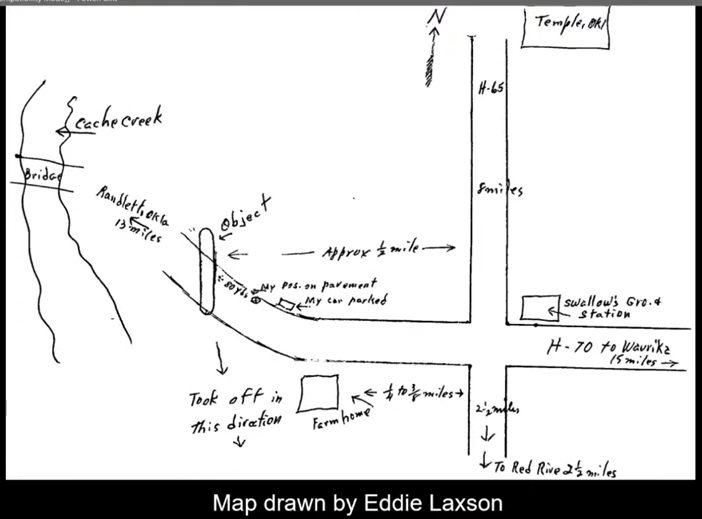 N
Temple, Okl
H-65
Cache creek
Bridge
8 miles
Randlett, Okla
13 miles
Object
Approx ½ mile
80 yds
My Pos. on pavement
My car parked
Swallow's Gro. &
station
H-70 to Waurika
15 miles
Took off in
this direction
Farm home
¼ to ⅜ miles
2½ miles
To Red Rive 2½ miles
Map drawn by Eddie Laxson